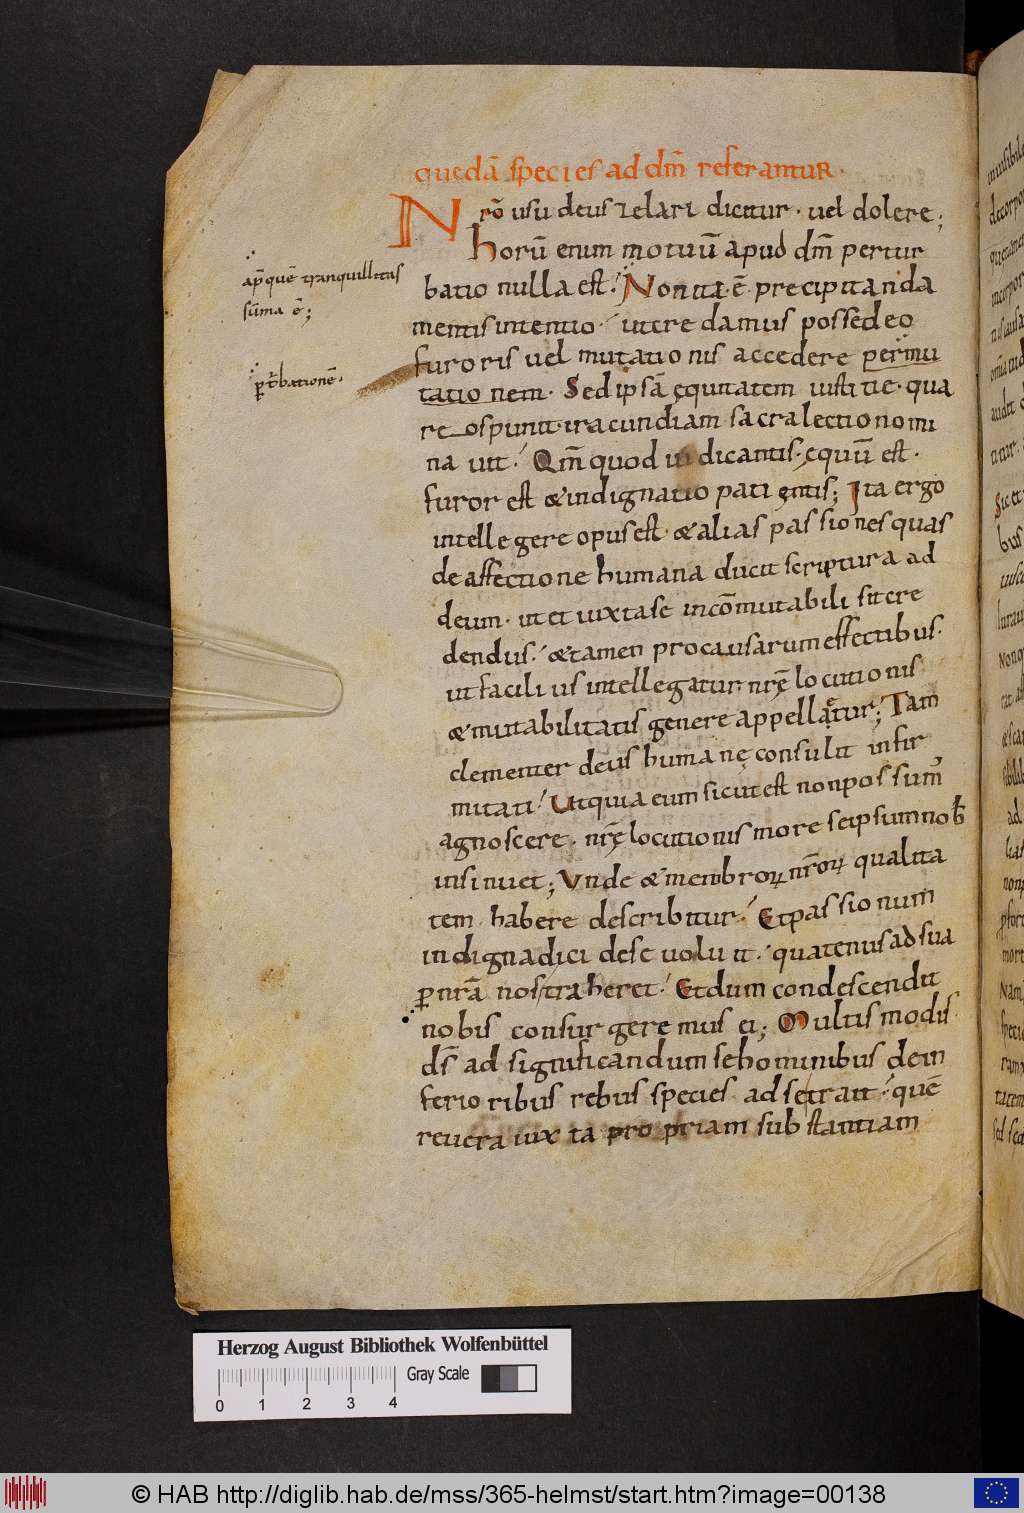 quedā species ad dm̄ referantur·
Nrō usu deus zelari dicitur· uel dolere;
horū enim motuū apud dm̄ pertur
batio nulla est; Non ita ē precipitanda
mentis intentio· ut credamus posse deo
furoris uel mutationis accedere permu
tationem· Sed ipsā ęquitatem iustitie· qua
reos punit· iracundiam sacra lectio nomi
nauit· Qm̄ quod iudicantis· ęquū est·
furor est & indignatio patientis; Ita ergo
intellegere opus est· & alias passiones quas
de affectione humana ducit scriptura ad
deum· ut et iuxta se incōmutabilis it cre
dendus· & tamen pro causarum effectibus·
ut facilius intellegatur· nr̄ę locutionis
& mutabilitatis genere appelletur; Tam
clementer deus humanę consulit infir
mitati· Ut quia eum sicut est non possum̄
agnoscere· nr̄ę locutionis more se ipsum nob̄
insinuet; Unde & membroꝝ nr̄oꝝ qualita
tem habere describitur· Et passionum
indigna dici de se uoluit· quatenus ad sua
ꝑ nrā nos traheret· Et dum condescendit
nobis consurgeremus ei; Multis modis
ds̄ ad significandum se hominibus de in
ferioribus rebus species ad se trait· quē
reuera iuxta propriam substantiam
ap̄ quē tranquillitas
sūma ē;
ꝑt̄bationē·
Herzog August Bibliothek Wolfenbüttel
Gray Scale
0 1 2 3 4
© HAB http://diglib.hab.de/mss/365-helmst/start.htm?image=00138